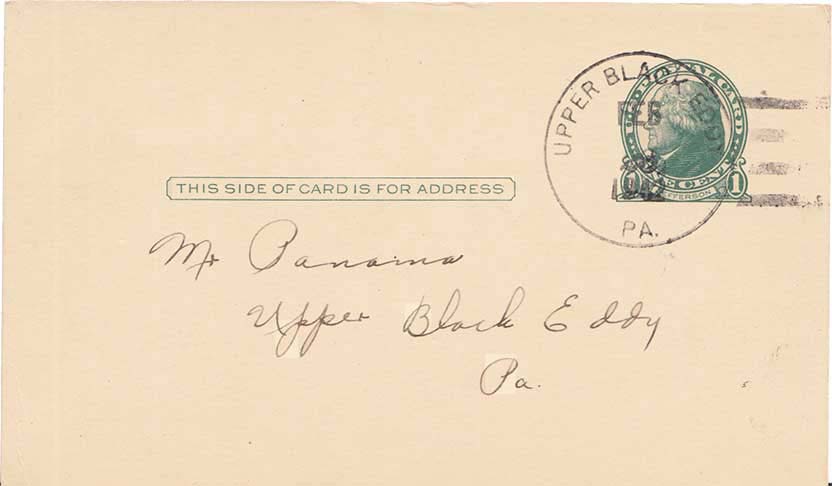 UPPER BLACK EDDY
FEB
3
1942
PA.
CARD
ONE CENT
1
JEFFERSON
THIS SIDE OF CARD IS FOR ADDRESS
Mr Panama
Upper Black Eddy
Pa.